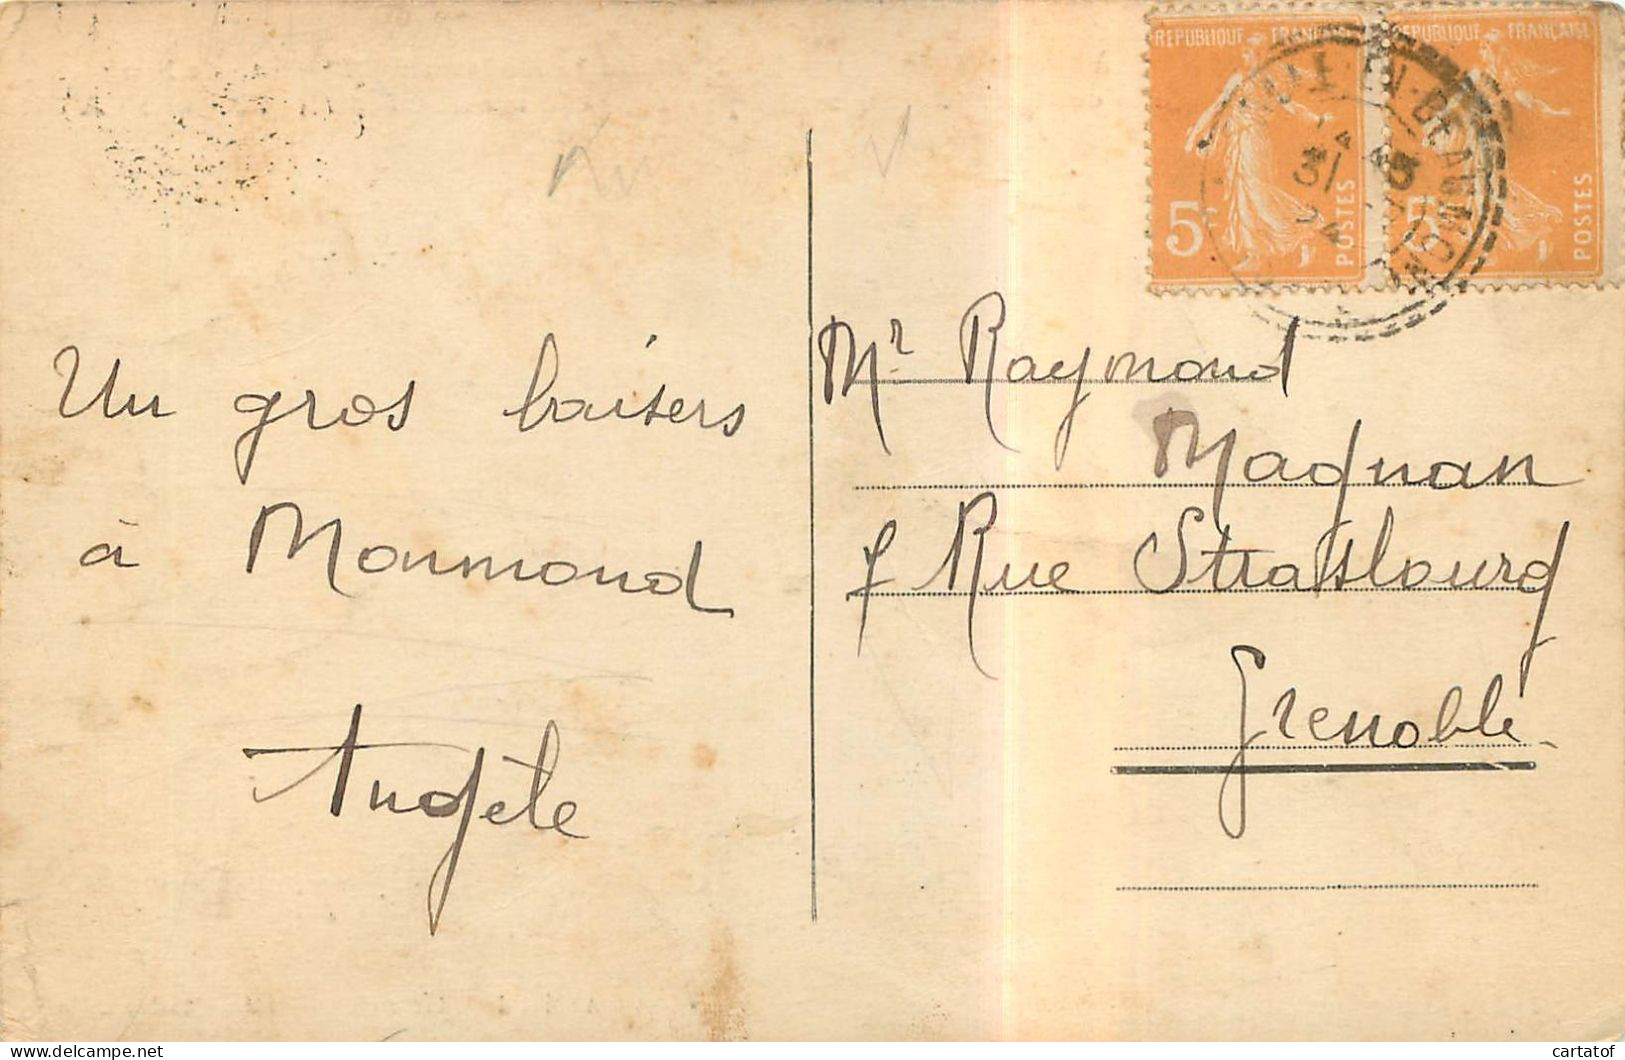 Un gros baisers
à Monmond
Angèle
REPUBLIQUE FRANÇAISE
5c
POSTES
REPUBLIQUE FRANÇAISE
5c
POSTES
EN-BEAUMONT
31
Mr Raymond
Magnan
7 Rue Strasbourg
Grenoble
cartatof